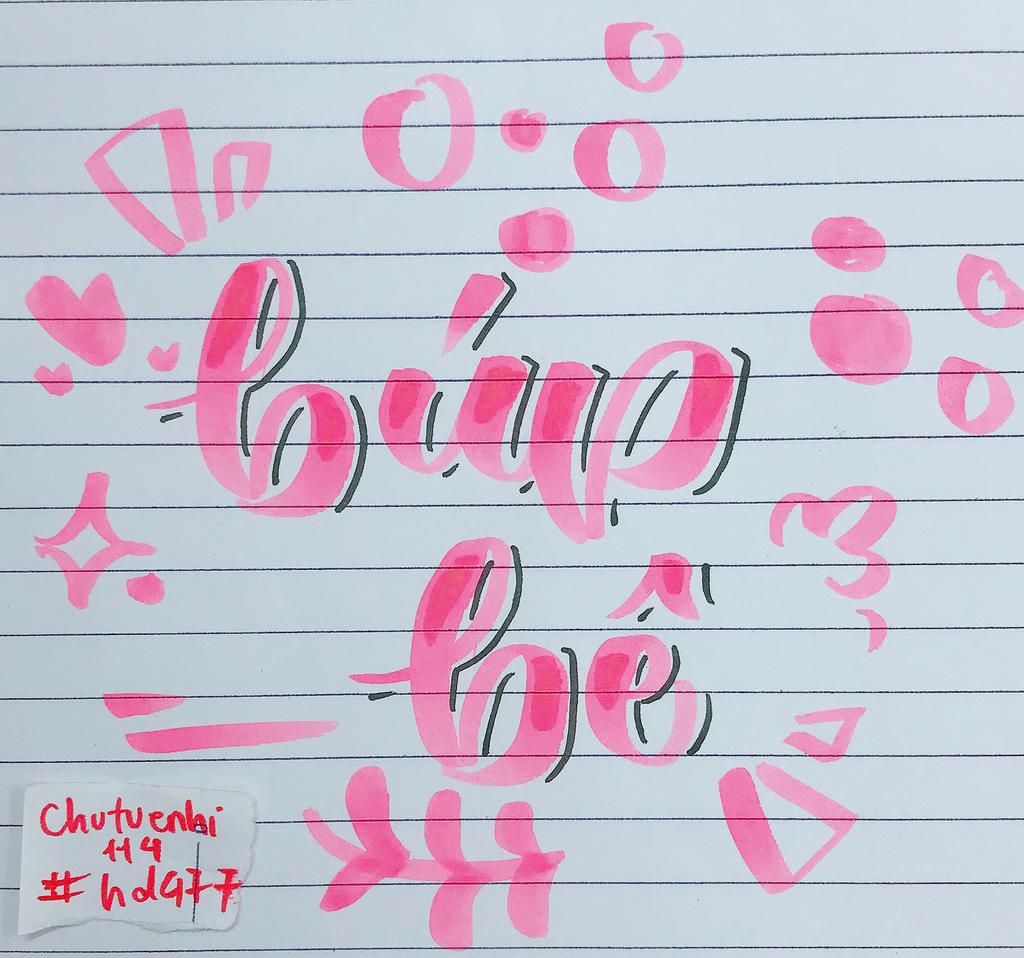 búp
bê
Chutuenhi
114
#hd477